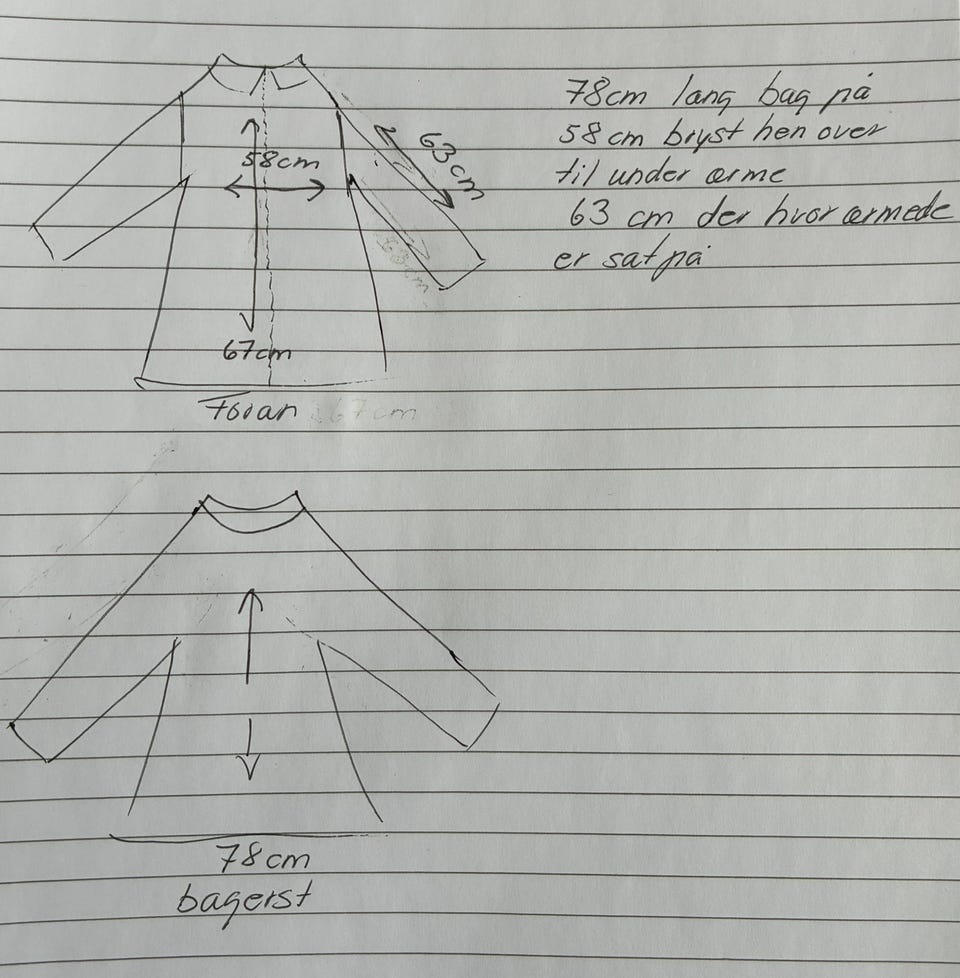 78cm lang bag på
58cm bryst hen over
til under ærme
63 cm der hvor ærmede
er sat på
58cm
63cm
63cm
67cm
Foran 67cm
78cm
bagerst